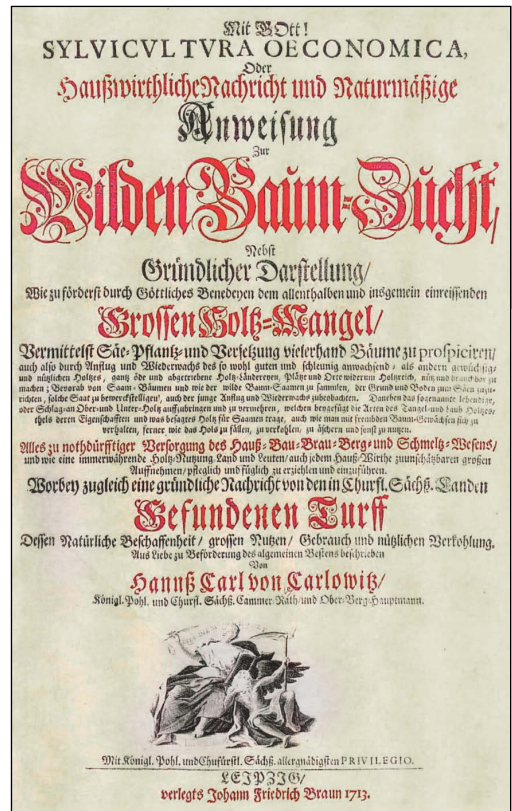 Mit GOtt!
SYLVICVLTVRA OECONOMICA,
Oder
Haußwirthliche Nachricht und Naturmäßige
Anweisung
Zur
Wilden Baum-Zucht/
Nebst
Gründlicher Darstellung/
Wie zu förderst durch Göttliches Benedeyen dem allenthalben und insgemein einreissenden
Grossen Holtz-Mangel/
Vermittelst Säe-Pflantz- und Versetzung vielerhand Bäume zu prospiciren/
auch also durch Anflug und Wiederwachs des so wohl guten und schleunig anwachsend, als andern gewüchsig-
und nützlichen Holtzes, gantz öde und abgetriebene Holtz-Ländereyen, Plätze und Orte wiederum Holtzreich, nütz und brauchbar zu
machen; Bevorab von Saam-Bäumen und wie der wilde Baum-Saamen zu samlen, der Grund und Boden zum Säen zuzu-
richten, solche Saat zu bewerckstelligen, auch der junge Anflug und Wiederwachs zu beobachten. Daneben das sogenannte lebendige,
oder Schlag-an Ober- und Unter-Holtz auffzubringen und zu vermehren, welchen beygefügt die Arten des Tangel- und Laub-Holtzes,
theils deren Eigenschafften und was besagtes Holtz für Saamen trage, auch wie man mit frembden Baum-Gewächsen sich zu
verhalten, ferner wie das Holtz zu fällen, zu verkohlen, zu äschern und sonst zu nutzen.
Alles zu nothdürfftiger Versorgung des Hauß-Bau-Brau-Berg- und Schmeltz-Wesens/
und wie eine immerwährende Holtz-Nutzung Land und Leuten/ auch jedem Hauß-Wirthe zu unschätzbaren großen
Auffnehmen/ pfleglich und füglich zu erziehlen und einzuführen.
Worbey zugleich eine gründliche Nachricht von den in Churfl. Sächß. Landen
Gefundenen Turff
Dessen Natürliche Beschaffenheit/ grossen Nutzen/ Gebrauch und nützlichen Verkohlung.
Aus Liebe zu Beförderung des algemeinen Bestens beschrieben
Von
Hannß Carl von Carlowitz/
Königl. Pohl. und Churfl. Sächß. Cammer-Rath und Ober-Berg-Hauptmann.
Mit Königl. Pohl. und Chufürstl. Sächß. allergnädigsten PRIVILEGIO.
LEIPZIG/
verlegts Johann Friedrich Braun 1713.